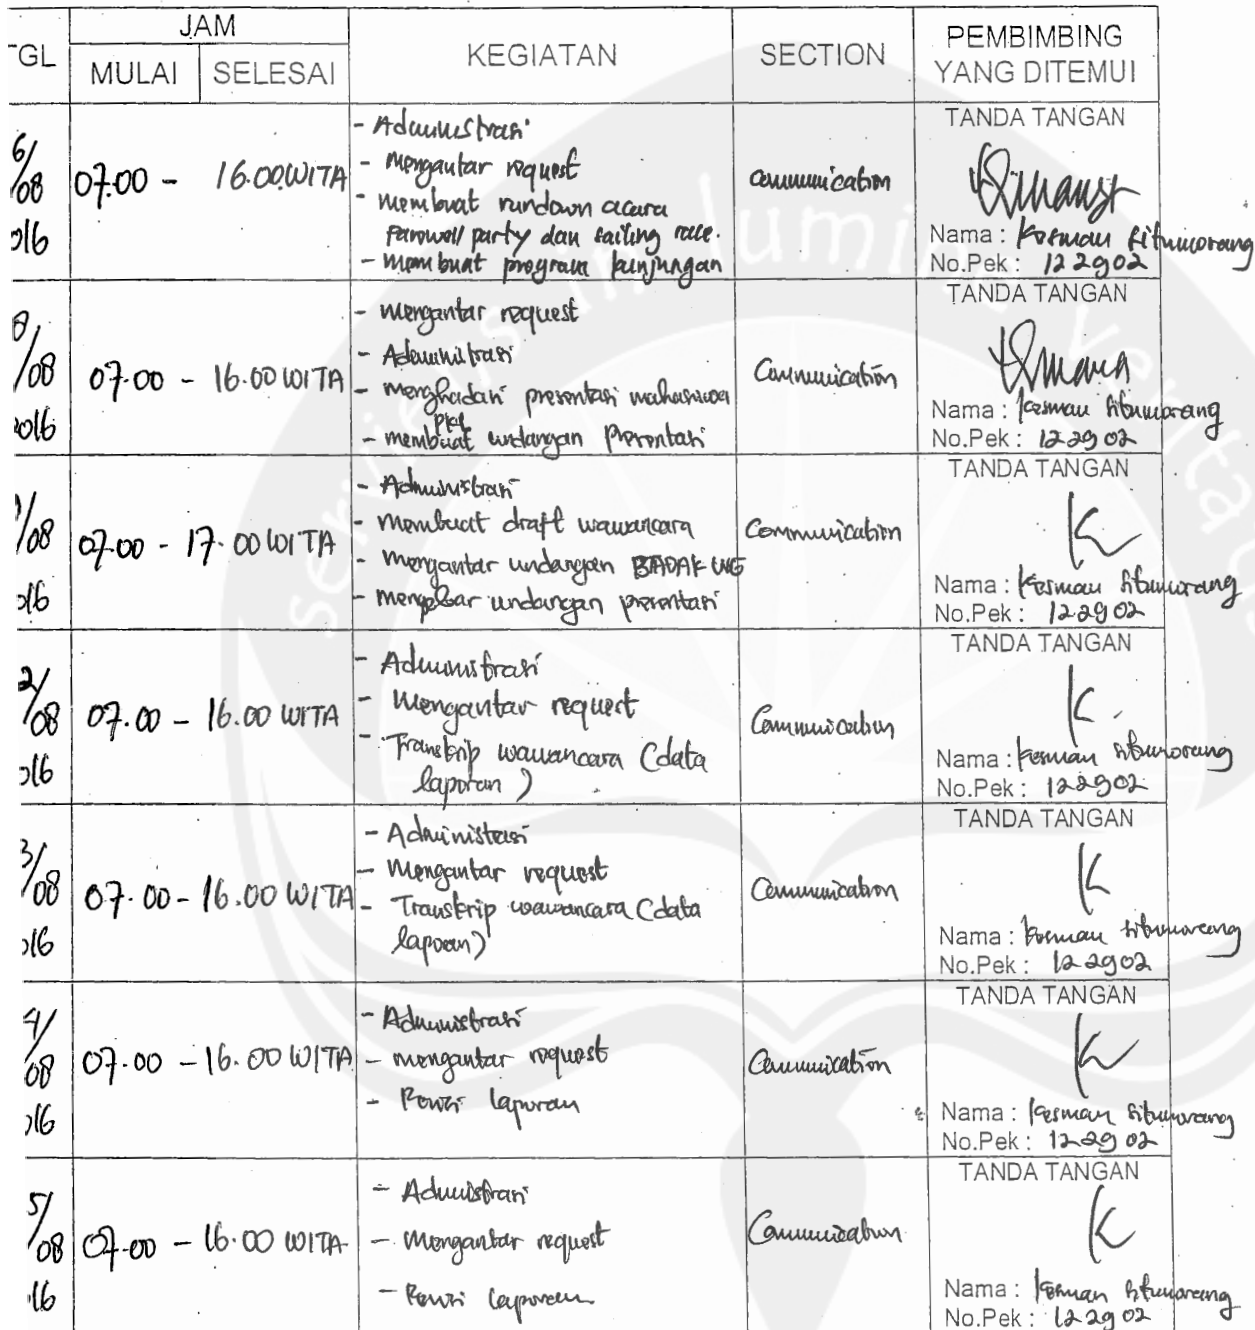 TGL JAM KEGIATAN SECTION PEMBIMBING YANG DITEMUI
MULAI SELESAI
6/08 016 07.00 - 16.00 WITA
- Administrasi
- Mengantar request
- membuat rundown acara
farewell party dan sailing race.
- membuat program kunjungan
Communication
TANDA TANGAN
Nama : Kosman Situmorang
No.Pek : 122902
8/08 2016 07.00 - 16.00 WITA
- mengantar request
- Administrasi
- menghadari presentasi mahasiswa
PKL
- membuat undangan Presentasi
Communication
TANDA TANGAN
Nama : Kosman Situmorang
No.Pek : 122902
/08 016 07.00 - 17.00 WITA
- Administrasi
- Membuat draft wawancara
- Mengantar undangan BADAK LNG
- menyebar undangan presentasi
Communication
TANDA TANGAN
Nama : Kosman Situmorang
No.Pek : 122902
2/08 016 07.00 - 16.00 WITA
- Administrasi
- Mengantar request
- Transkrip wawancara (data
laporan)
Communication
TANDA TANGAN
Nama : Kosman Situmorang
No.Pek : 122902
3/08 016 07.00 - 16.00 WITA
- Administrasi
- Mengantar request
- Transkrip wawancara (data
laporan)
Communication
TANDA TANGAN
Nama : Kosman Situmorang
No.Pek : 122902
4/08 016 07.00 - 16.00 WITA
- Administrasi
- mengantar request
- Revisi laporan
Communication
TANDA TANGAN
Nama : Kosman Situmorang
No.Pek : 122902
5/08 16 07.00 - 16.00 WITA
- Administrasi
- Mengantar request
- Revisi laporan
Communication
TANDA TANGAN
Nama : Kosman Situmorang
No.Pek : 122902
serviens in lumine veritatis